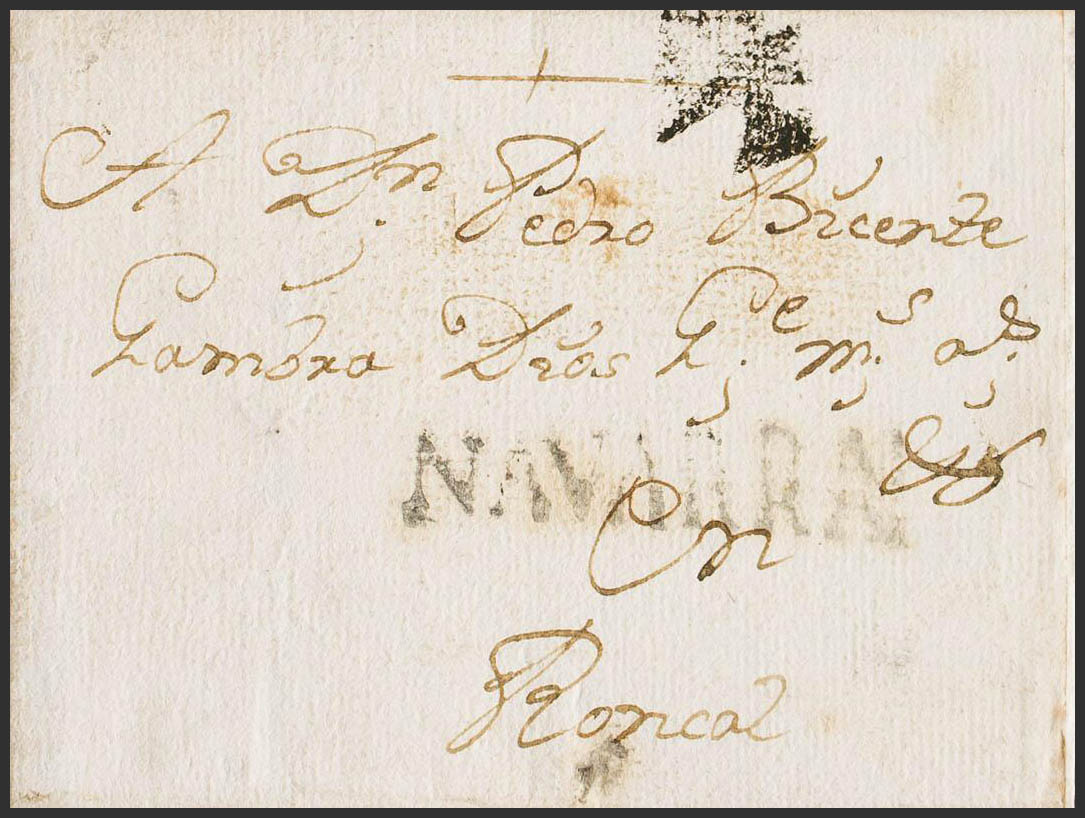 A Dn. Pedro Bicente
Gambra Dios G.e m.s a.s
NAVARRA
En
Roncal